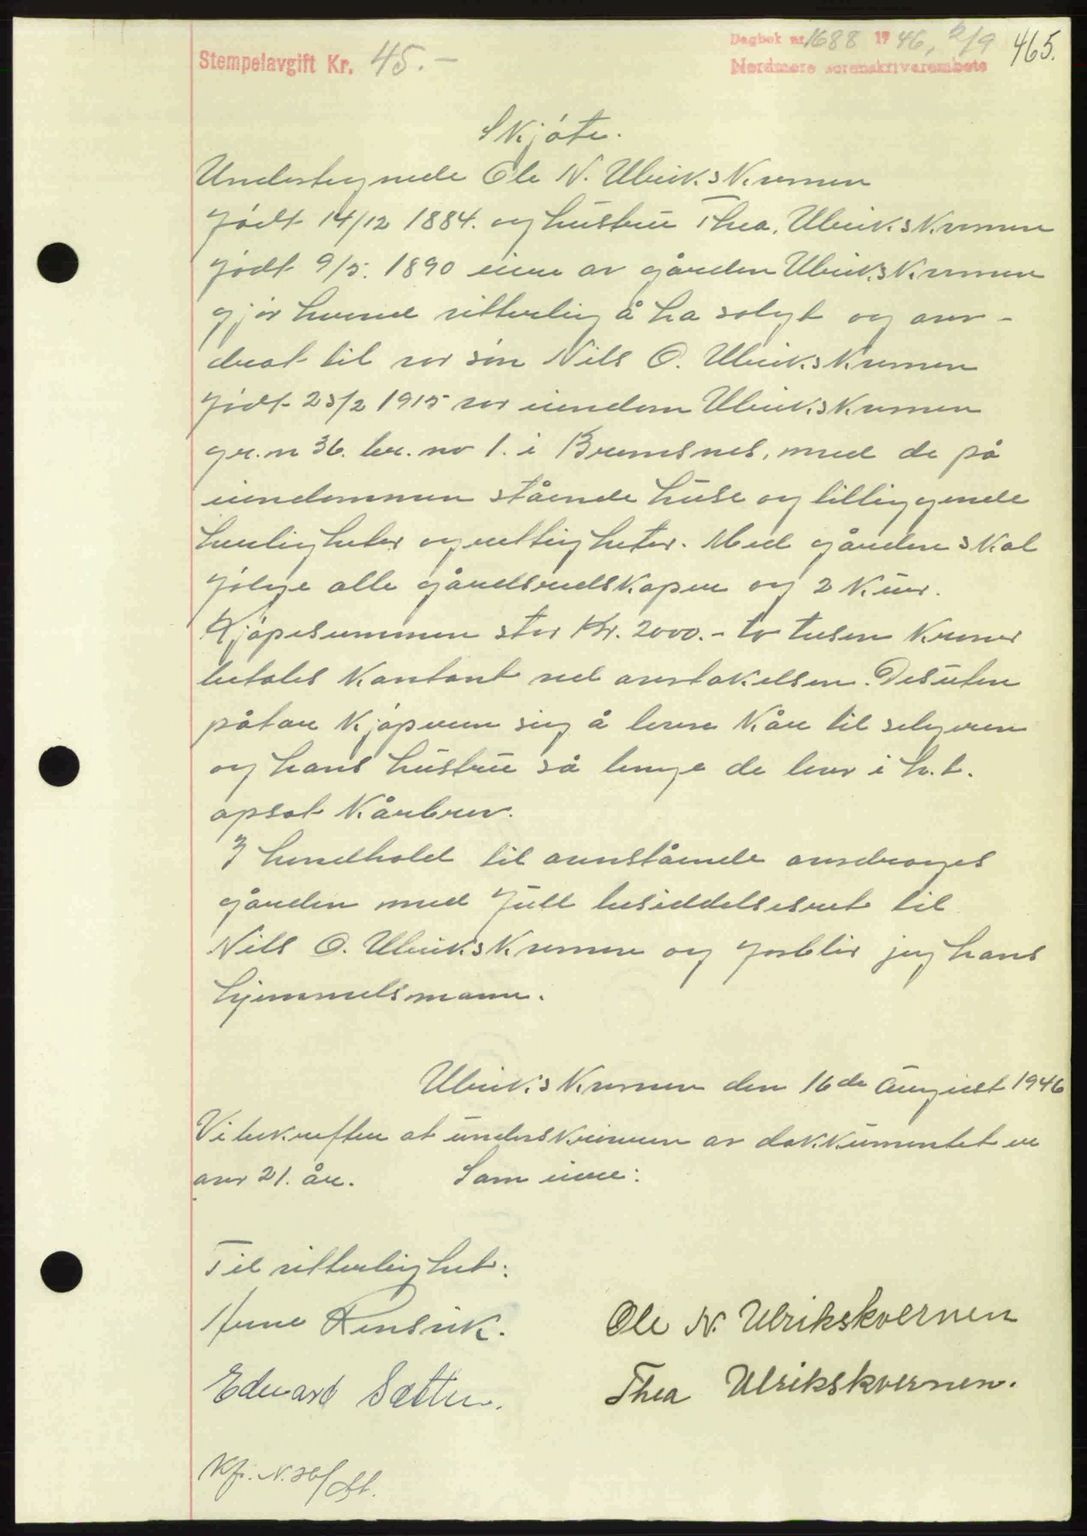 Stempelavgift Kr. 45.-
Dagbok nr. 1688 1946, 2/9
Nordmøre sorenskriverembete
465.
Skjøte.
Undertegnede Ole N. Ulrikskvernen
født 14/12 1884. og hustru Thea. Ulrikskvernen
født 9/5. 1890 eiere av gården Ulrikskvernen
gjør herved vitterlig å ha solgt og over-
drat til vor søn Nils O. Ulrikskvernen
født 23/2 1915 vor eiendom Ulrikskvernen
gr.n 36. br. no 1. i Bremsnes, med de på
eiendommen stående huse og tilliggende
herligheter og rettigheter. Med gården skal
følge alle gårdsredskaper og 2 kuer.
Kjøpesummen stor Kr. 2000.- to tusen kroner
betales kontant ved overtakelsen. Desuten
påtar kjøperen sig å levere kår til selgeren
og hans hustru så lenge de lever i h.t.
opsat kårbrev.
I henhold til ovenstående overdrages
gården med full besiddelsesret til
Nils O. Ulrikskvernen og forblir jeg hans
hjemmelsmann.
Ulrikskvernen den 16de August 1946
Vi bekrefter at underskriveren av dokkumentet er
over 21. år. Som eiere:
Til vitterlighet:
Arne Rensvik. Ole N. Ulrikskvernen
Edvard Sætter. Thea Ulrikskvernen.
Kfr. N. 36/